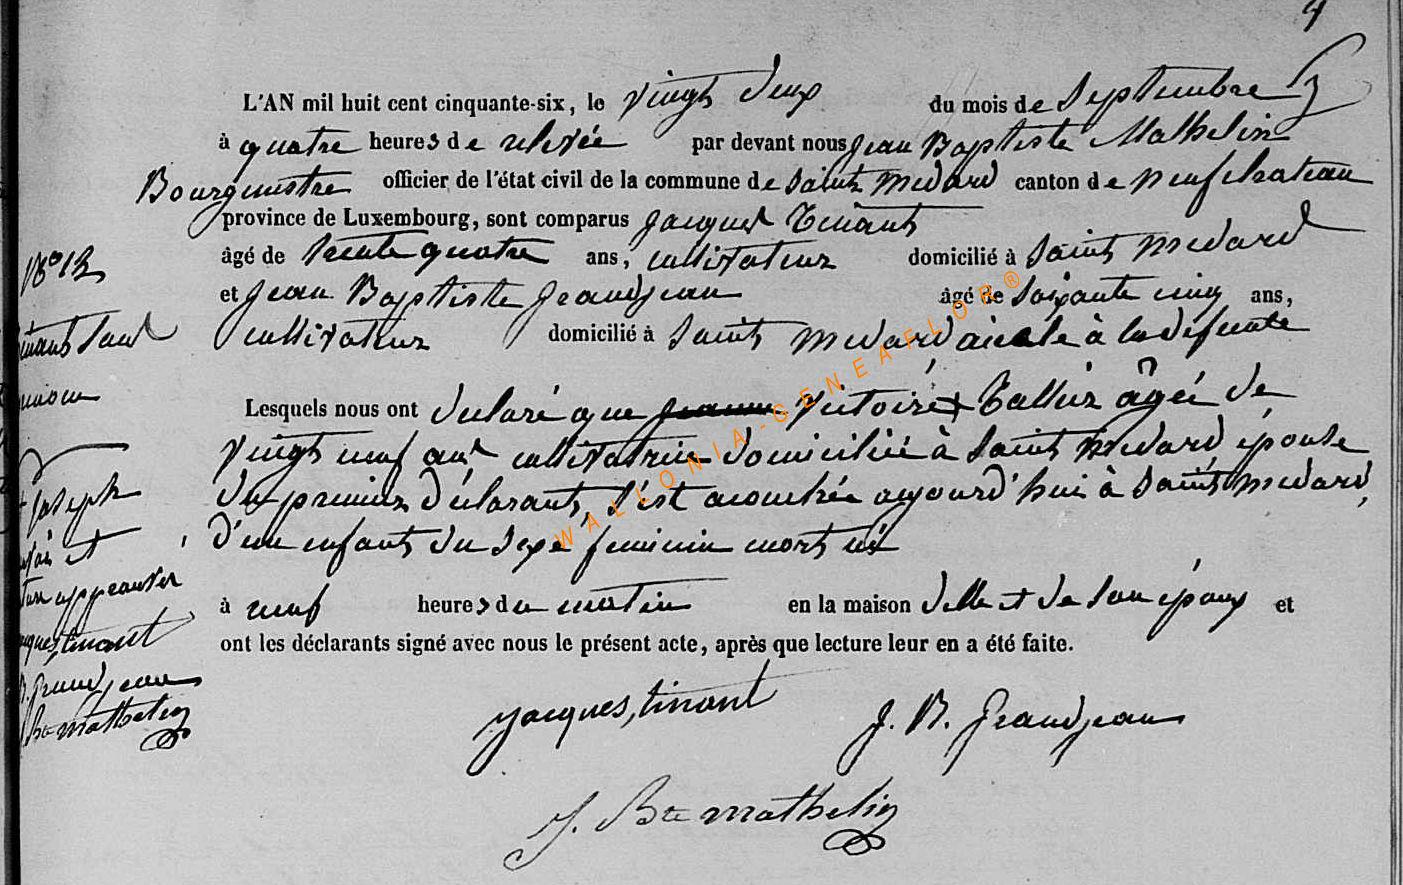 4
L'AN mil huit cent cinquante-six, le vingt deux du mois de Septembre
à quatre heures de relevée par devant nous Jean Baptiste Mathelin
Bourgmestre officier de l'état civil de la commune de Saint Médard canton de Neufchateau
province de Luxembourg, sont comparus Jacques Tinant
âgé de trente quatre ans, cultivateur domicilié à Saint Médard
et Jean Baptiste Grandjean âgé de Soixante cinq ans,
cultivateur domicilié à Saint Médard à la défunte
Lesquels nous ont déclaré que Victoire Tallier âgée de
vingt neuf ans cultivatrice domiciliée à Saint Médard épouse
du premier déclarant, s'est acouchée aujourd'hui à Saint Médard,
d'un enfant du sexe féminin mort né
à neuf heures du matin en la maison d'elle et de son époux et
ont les déclarants signé avec nous le présent acte, après que lecture leur en a été faite.
Jacques, tinant J. B. Grandjean
J. Bte mathelin
No 12
Joseph
et
approuvés
tinant
B. Grandjean
Bte mathelin
WALLONIA-GENEAFLOR®